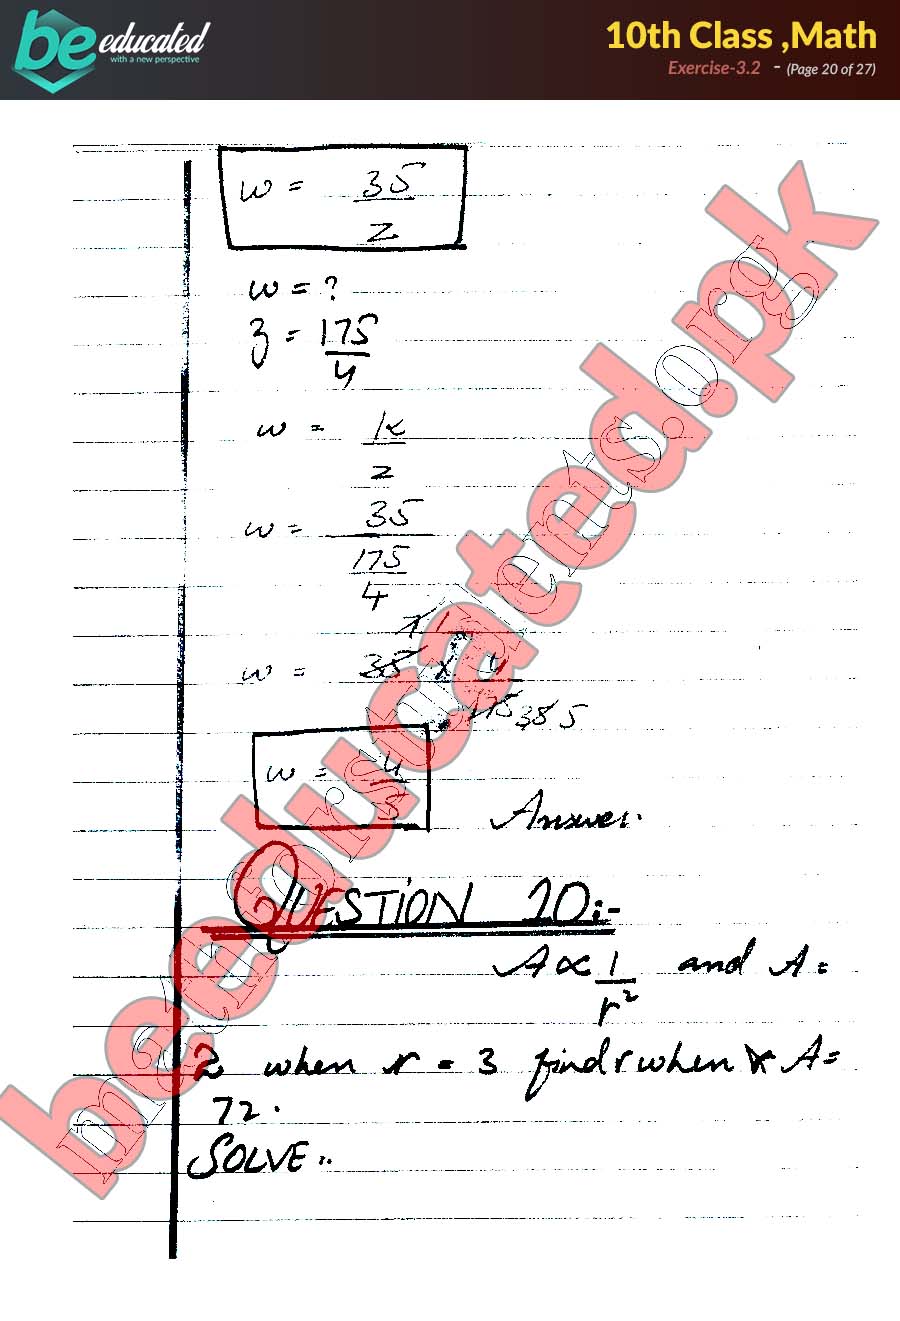 be educated
with a new perspective
10th Class ,Math
Exercise-3.2 - (Page 20 of 27)
w = 35
z
w = ?
z = 175
4
w = k
z
w = 35
175
4
7 1
w = 35 x 4
175 35 5
w = 4
5
Answer.
QUESTION 10:-
A ∝ 1 and A =
r²
2 when r = 3 find r when A =
72.
SOLVE:.
beeducated.pk